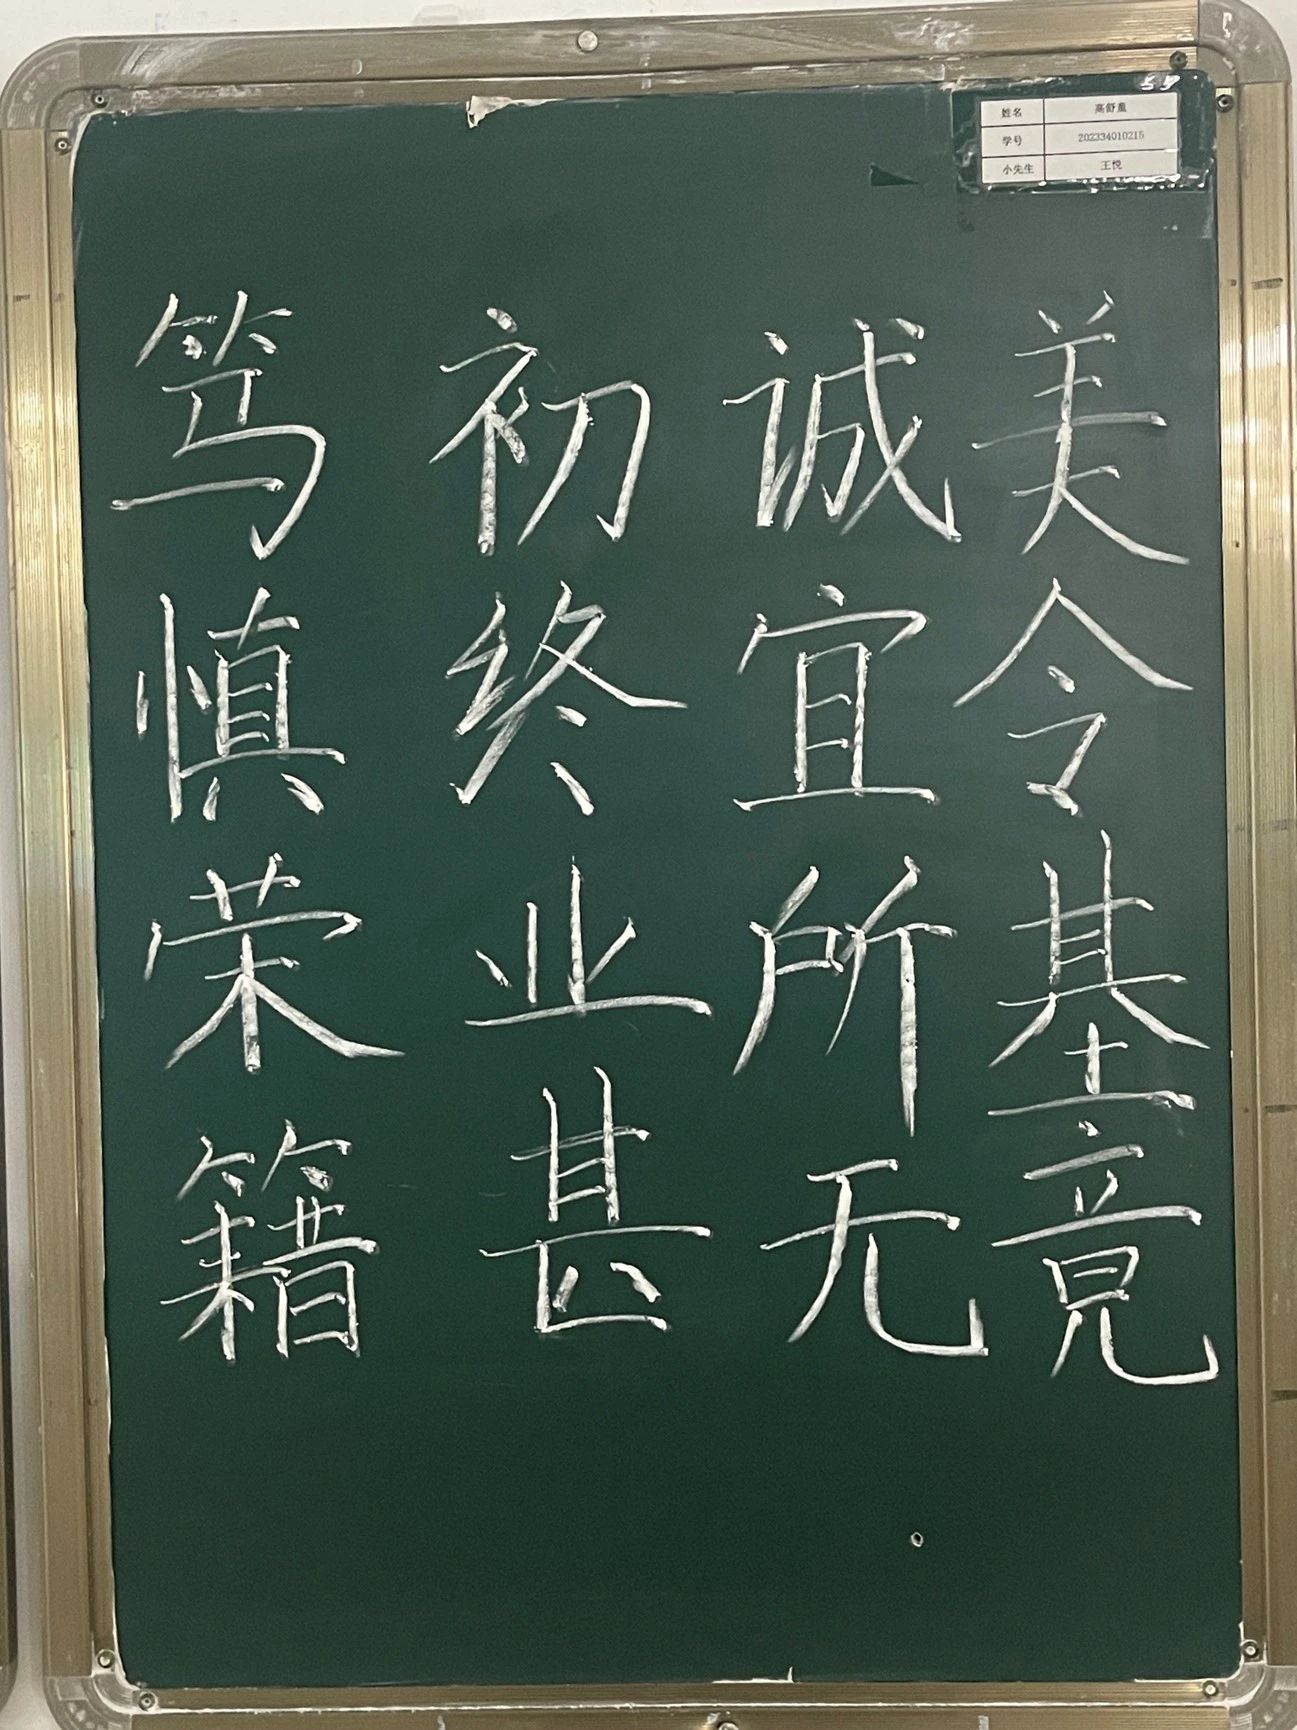 姓名 高舒薰
学号 202334010215
小先生 王悦
笃初诚美
慎终宜令
荣业所基
籍甚无竟